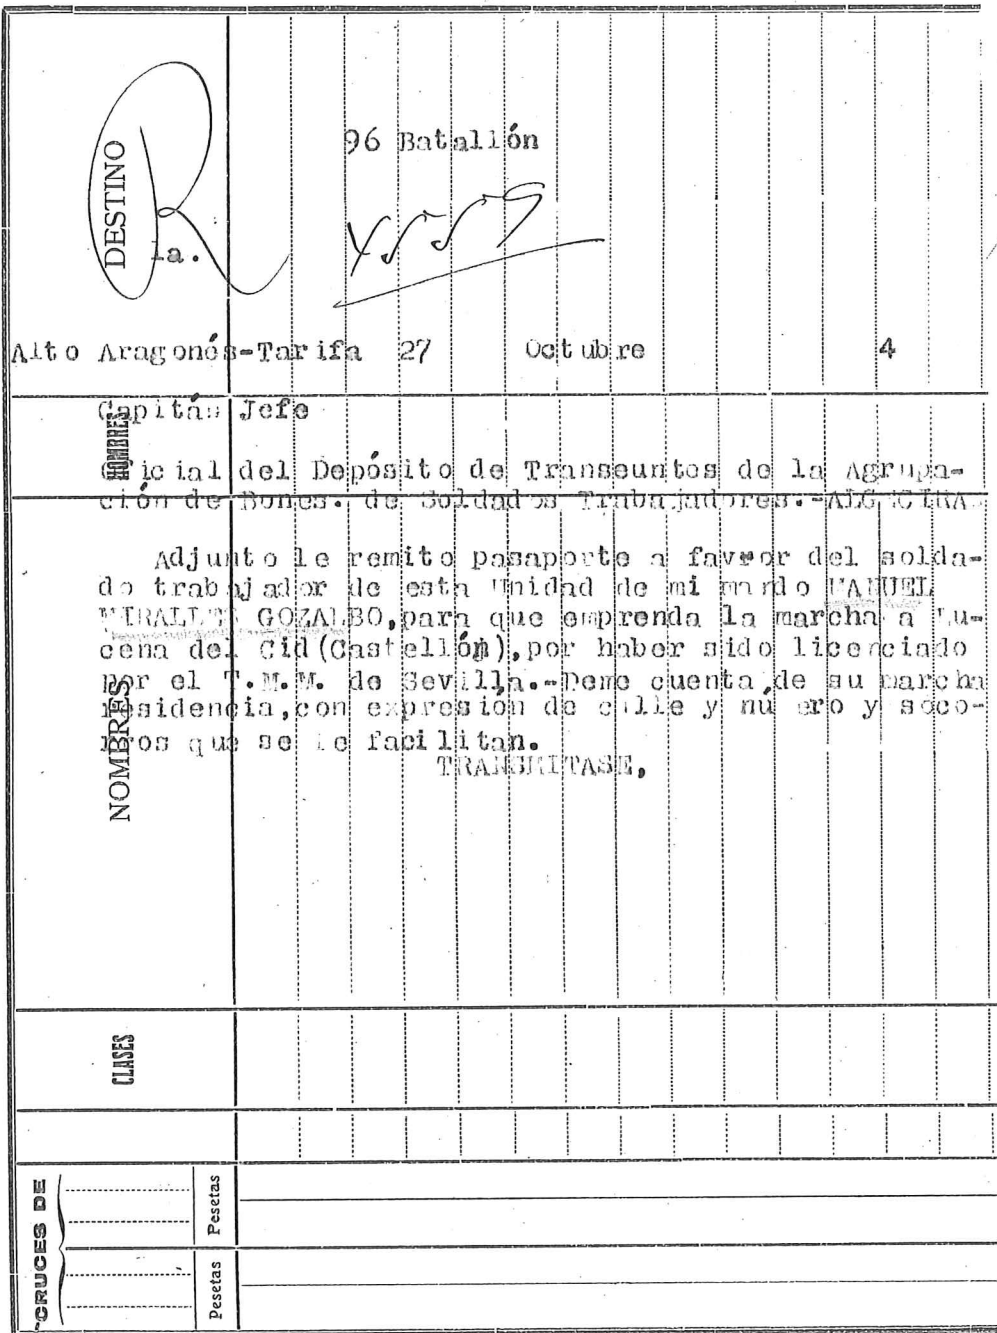 DESTINO
96 Batallón
1a.
Alto Aragonés-Tarifa 27 Octubre 4
Capitán Jefe
HOMBRES
Oficial del Depósito de Transeuntes de la Agrupa-
ción de Bones. de Soldados Trabajadores.-ALGECIRA
Adjunto le remito pasaporte a favror del solda-
do trabajador de esta Unidad de mi mando MANUEL
MIRALLES GOZALBO, para que emprenda la marcha a Lu-
cena del Cid (Castellón), por haber sido licenciado
por el T.M.M. de Sevilla.-Deme cuenta de su marcha
residencia, con expresión de calle y número y soco-
rros que se le facilitan.
TRANSMITASE,
NOMBRES
CLASES
CRUCES DE
Pesetas
Pesetas